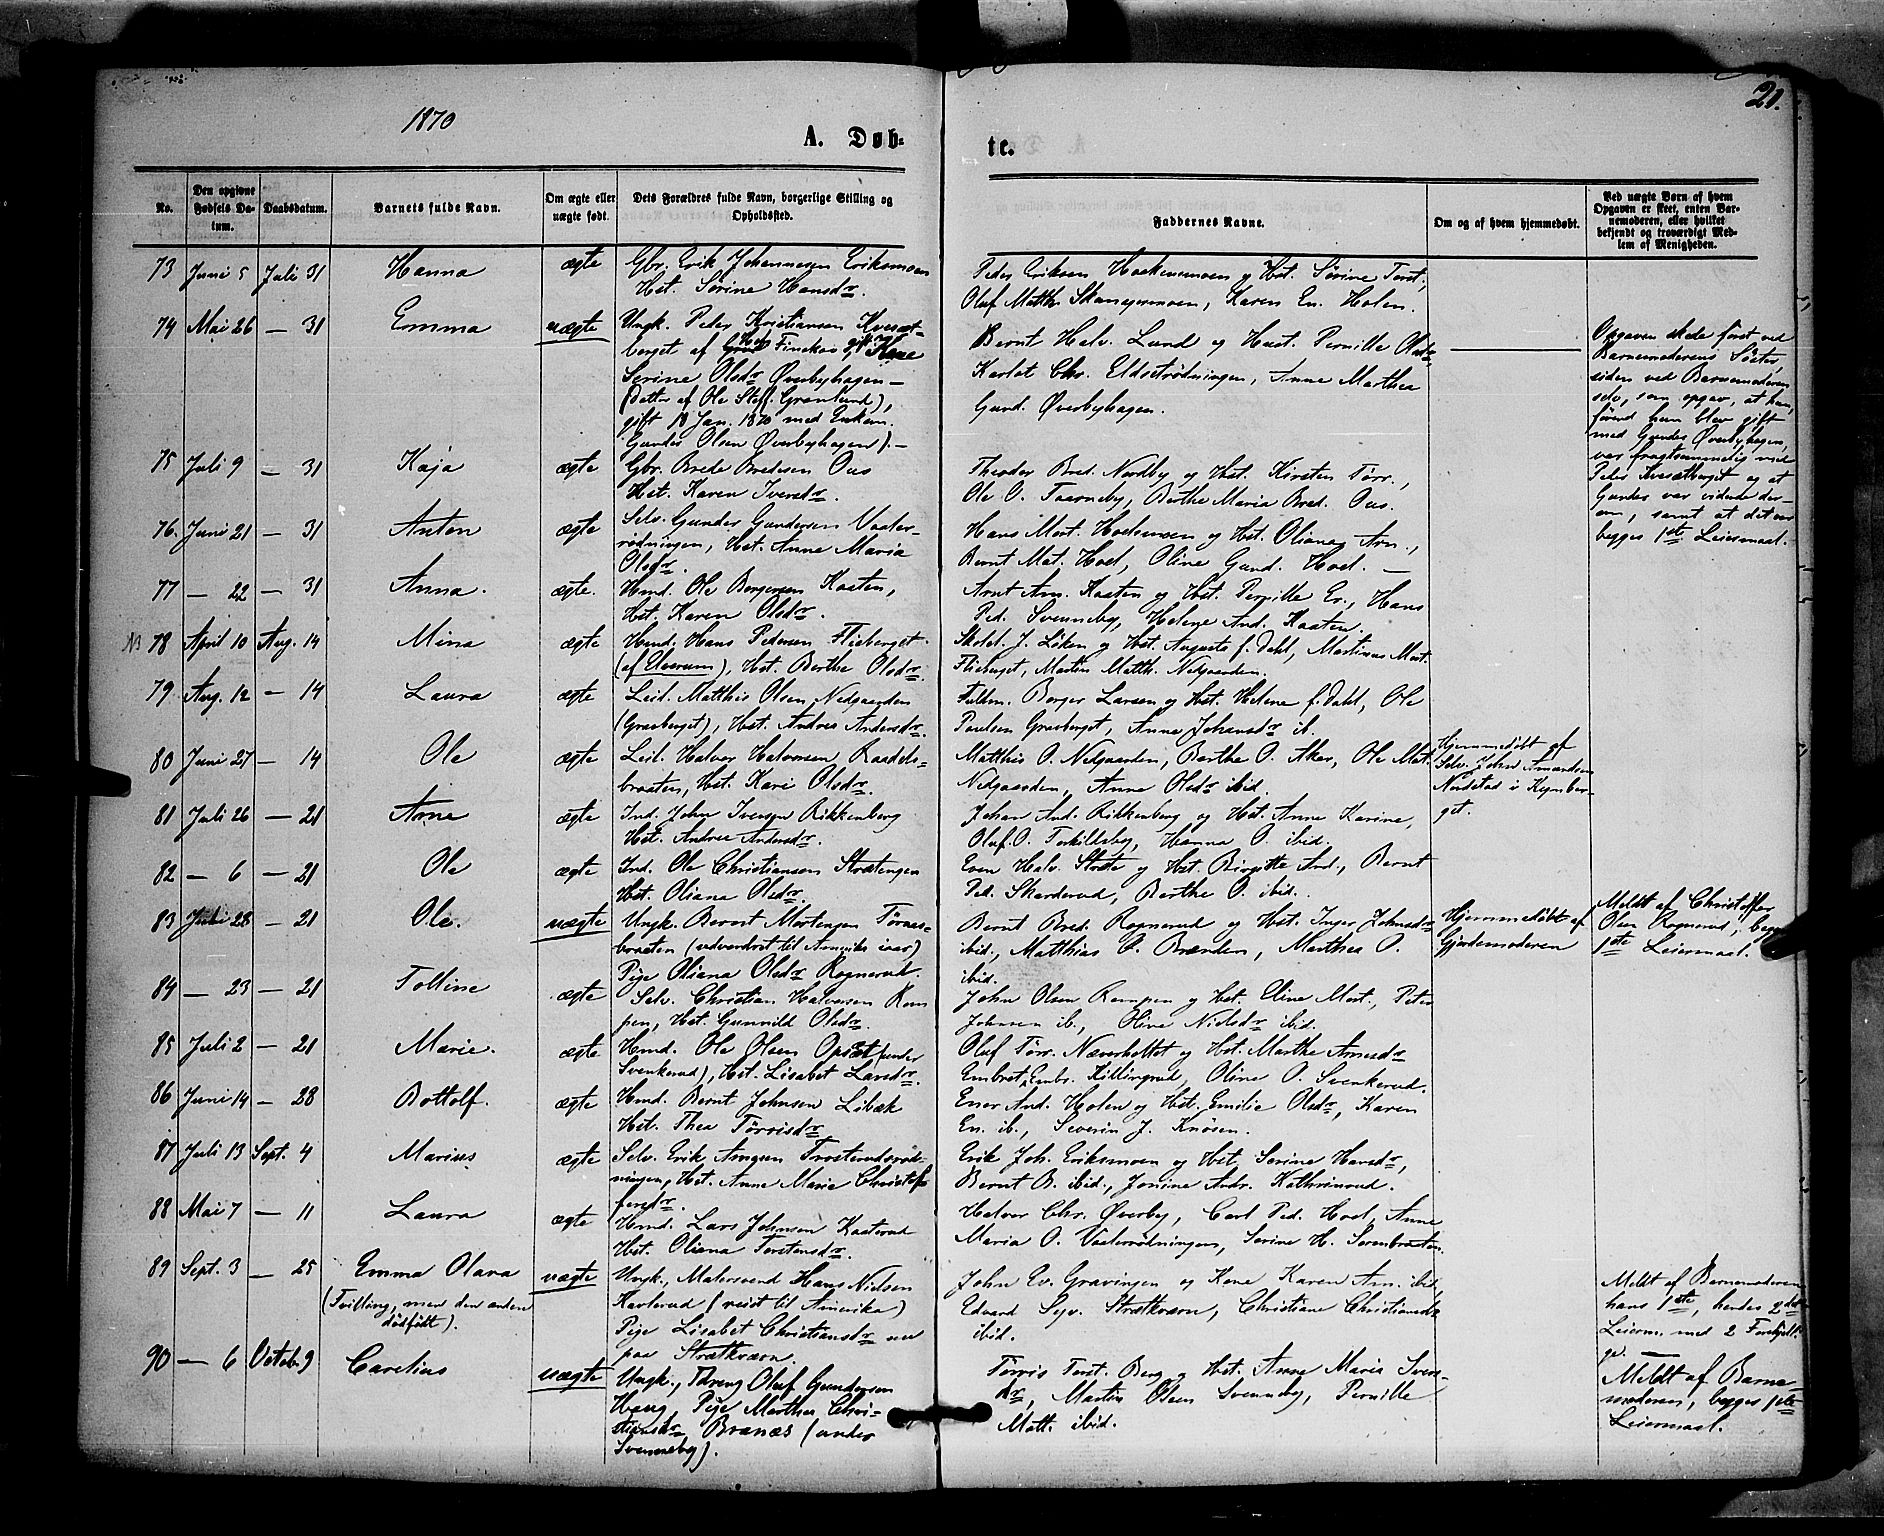 1870
A. Døb=
te.
21.
No.
Den opgivne Fødsels Da-
tum.
Daabsdatum.
Barnets fulde Navn.
Om ægte eller
uægte født.
Dets Forældres fulde Navn, borgerlige Stilling og
Opholdssted.
Faddernes Navne.
Om og af hvem hjemmedøbt.
Ved uægte Børn af hvem
Opgaven er skeet, enten Bar-
nemoderen, eller hvilket
bekjendt og troværdigt Med-
lem af Menigheden.
73 Juni 5 Juli 31 Hanna ægte Gbr. Erik Johannesen Eriksmoen
Hst. Sørine Hansdr.
Peder Eriksen Hoekensmoen og Hst. Sørine Torst.,
Oluf Matth. Skansgrmoen, Karen En. Holen.
74 Mai 26 — 31 Emma uægte Ungk. Peder Kristiansen Kvesæt-
berget af Hof Finskov, gift Kone
Serine Olsdr Øverbyhagen —
(Datter af Ole Steff. Grønlund),
gift 18 Jan. 1870 med Enkem.
Gunder Olsen Øverbyhagen). —
Bernt Halv. Lund og Hust. Pernille Olsdr,
Karlot Chr. Eldsetrødningen, Anne Marthea
Gund. Øverbyhagen.
Opgaven skede først ved
Barnemoderens Søster,
siden ved Barnemoderen
selv, som opgav, at hun,
førend hun blev gift
med Gunder Øverbyhagen,
var frugtsommelig ved
Peder Kvesætberget og at
Gunder var vidende der-
om, samt at det var
begges 1ste Leiermaal.
75 Juli 9 — 31 Kaja ægte Gbr. Brede Bredesen Ous
Hst. Karen Iversdr.
Theodor Bred. Nordby og Hst. Kirsten Tørr.,
Ole O. Taarneby, Berthe Maria Bred. Ous.
76. Juni 21 — 31 Anton ægte Selv. Gunder Gundersen Vaaler-
rødningen, Hst. Anne Maria
Olsdr.
Hans Mort. Hoelsmoen og Hst. Oliane Arn.,
Bernt Mat. Hoel, Oline Gund. Hoel. —
77 — 22 — 31 Anna. ægte. Hmd. Ole Borgersen Kaaten,
Hst. Karen Olsdr.
Arnt Arn. Kaaten og Hst. Pernille Er., Hans
Ped. Svenneby, Helene And. Kaaten.
78 April 10 Aug. 14 Mina ægte Hmd. Hans Pedersen Flisberget
(af Elverum), Hst. Berthe Olsdr.
Skolel. J. Løken og Hst. Augusta f. Dahl, Martinus Mort.
Flisberget, Martin Matth. Nedgaarden.
79 Aug. 12 — 14 Laura ægte Leil. Matthis Olsen Nedgaarden
(Gravberget), Hst. Andrea Andersdr.
Fuldm. Borger Larsen og Hst. Helene f. Dahl, Ole
Poulsen Gravberget, Anne Johansdr ib.
80 Juni 27 — 14 Ole ægte Leil. Halvor Halvorsen Raadels-
braaten, Hst. Kari Olsdr.
Matthis O. Nedgaarden, Berthe O. Aker, Ole Mat.
Nedgaarden, Anne Olsdr ibid.
Hjemmedøbt af
Selv. John Amundsen
Nordstad i Kynber-
get.
81 Juli 26 — 21 Arne ægte Ind. John Iversen Rikkenberg
Hst. Andrea Andersdr.
Johan And. Rikkenberg og Hst. Anne Karine,
Oluf O. Torkildsby, Hanna O. ibid.
82 — 6 — 21 Ole ægte Ind. Ole Christiansen Strætengen
Hst. Oliana Olsdr.
Even Halv. Stræte og Hst. Birgitte And., Bernt
Ped. Skarderud, Berthe O. ibid.
83 28 — 21 Ole. uægte Ungk. Bernt Mortensen Tørres-
braaten (udvandret til Amerika ivaar)
Pige Oliana Olsdr Rognerud.
Bernt Bred. Rognerud og Hst. Inger Johnsdr
ibid., Matthias O. Brænden, Marthea O.
ibid.
Hjemmedøbt af
Gjordemoderen
Meldt af Christoffer
Olsen Rognerud, begges
1ste Leiermaal.
84 — 23 — 21 Tolline ægte Selv. Christian Halvorsen Ram-
pen, Hst. Gunnild Olsdr.
John Olsen Rampen og Hst. Eline Mort., Peter
Johnsen ib., Oline Nielsdr ibid.
85 Juli 2 — 21 Marie. ægte Hmd. Ole Olsen Opsæt (under
Svenkerud), Hst. Lisabet Larsdr.
Oluf Tørr. Næverholtet og Hst. Marthe Arnesdr
Embret Embr. Killingrud, Oline O. Svenkerud.
86 Juni 14 — 28 Bottolf. ægte Hmd. Bernt Johnsen Libæk
Hst. Thea Tørrisdr.
Ener And. Holen og Hst. Emilie Olsdr, Karen
En. ib., Severin J. Knøsen.
87 Juli 13 Sept. 4 Marius ægte Selv. Erik Arnesen Frosterudsrød-
ningen, Hst. Anne Marie Christof-
fersdr.
Erik Joh. Eriksmoen og Hst. Serine Hansdr,
Bernt B. ibid., Jonine Andr. Kathrinrud.
88 Mai 7 — 11 Laura ægte Hmd. Lars Johnsen Kaaterud
Hst. Oliana Torstensdr.
Halvor Chr. Øverby, Carl Ped. Hoel, Anne
Maria O. Vaalerrødningen, Serine H. Sorenbraaten.
89 Sept. 3 — 25 Emma Olava uægte
(Tvilling, men den anden
dødfødt).
Ungk., Malersvend Hans Nielsen
Karterud (reist til Amerika)
Pige Lisabet Christiansdr nu
paa Strætkværn.
John Ev. Gravingen og Kone Karen Arn. ibid,
Edvard Syv. Strætkværn, Christiane Christiansdr
ibid.
Meldt af Barnemoderen
hans 1ste, hendes 2det
Leierm. med 2 Forskjelli-
ge.
90 — 6 Octob. 9 Carelius uægte Ungk., Tdreng Oluf Gundersen
Haug, Pige Marthea Chri-
stiansdr, Branæs (under
Svenneby).
Tørris Torst. Berg og Hst. Anne Maria Sven-
dr, Martin Olsen Svenneby, Pernille
Matt. ibid.
Meldt af Barne-
moderen, begges 1ste
Leiermaal.